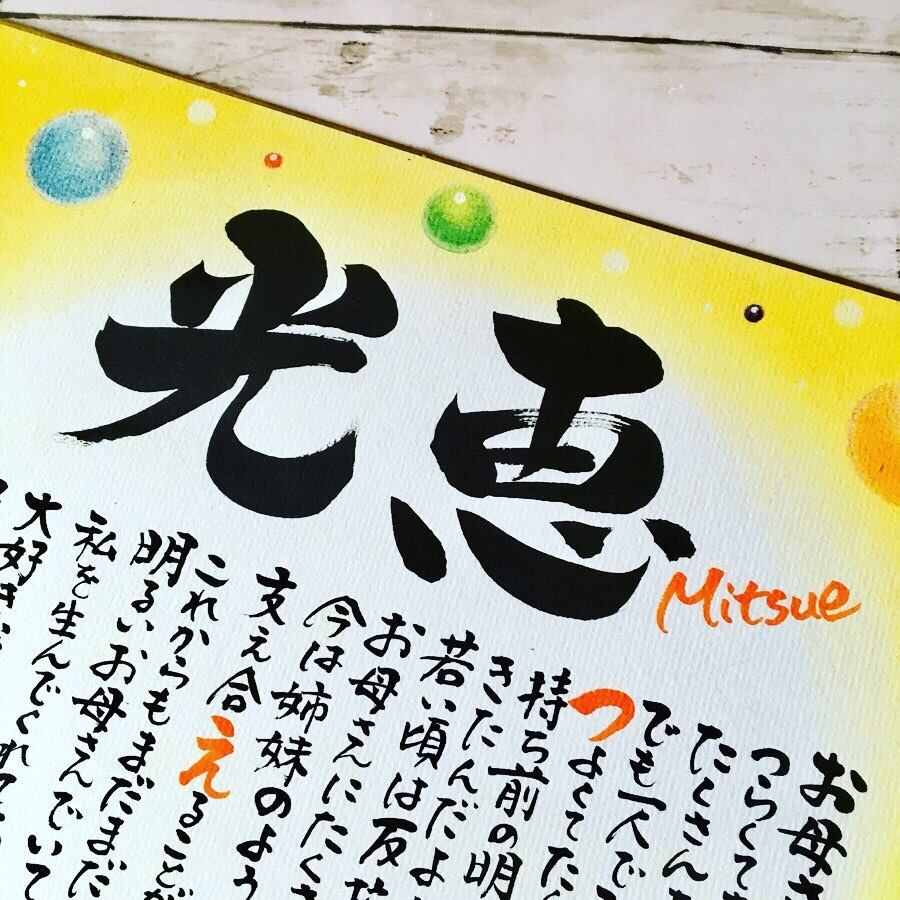 光恵
Mitsue
お母さ
つらくて
たくさん
でも一人で
つよくてた
持ち前の明
きたんだよ
若い頃は反抗
お母さんにたくさ
今は姉妹のよう
支え合えることが
これからもまだまだ
明るいお母さんでいて
私を生んでくれて
大好き